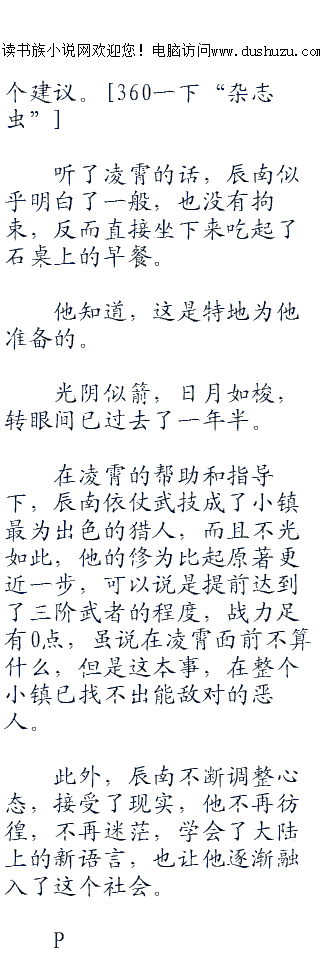 读书族小说网欢迎您！电脑访问www.dushuzu.com
个建议。[360一下“杂志
虫”]
听了凌霄的话，辰南似
乎明白了一般，也没有拘
束，反而直接坐下来吃起了
石桌上的早餐。
他知道，这是特地为他
准备的。
光阴似箭，日月如梭，
转眼间已过去了一年半。
在凌霄的帮助和指导
下，辰南依仗武技成了小镇
最为出色的猎人，而且不光
如此，他的修为比起原著更
近一步，可以说是提前达到
了三阶武者的程度，战力足
有0点，虽说在凌霄面前不算
什么，但是这本事，在整个
小镇已找不出能敌对的恶
人。
此外，辰南不断调整心
态，接受了现实，他不再彷
徨，不再迷茫，学会了大陆
上的新语言，也让他逐渐融
入了这个社会。
P